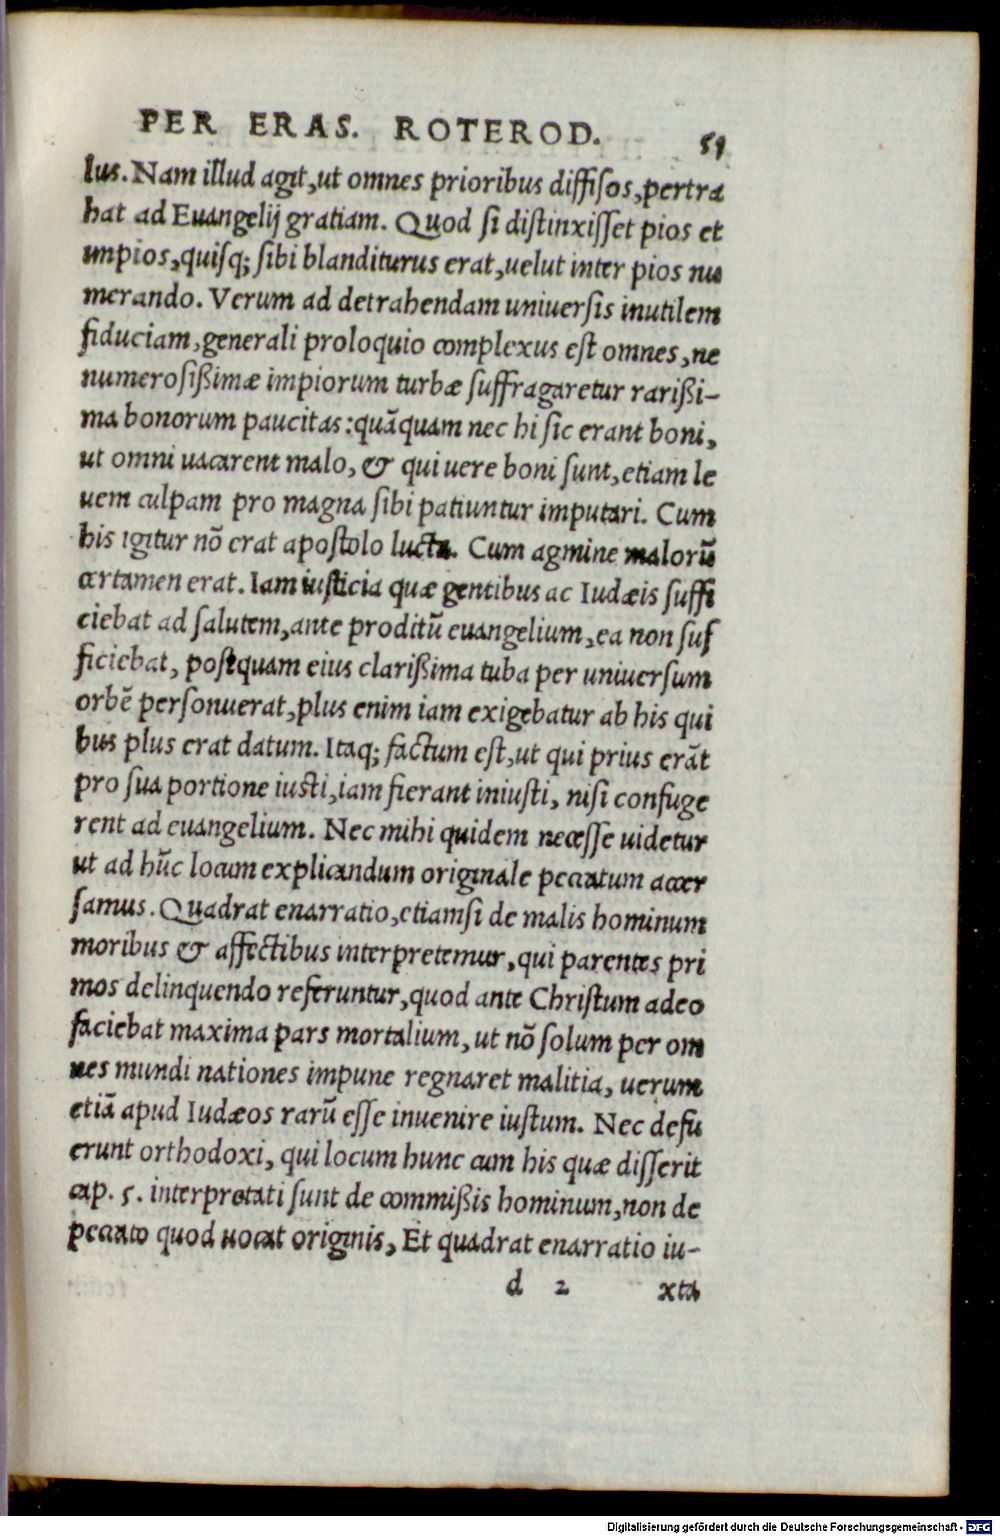 PER ERAS. ROTEROD. 51
lus. Nam illud agit, ut omnes prioribus diffisos, pertra
hat ad Euangelij gratiam. Quod si distinxisset pios et
impios, quisq; sibi blanditurus erat, uelut inter pios nu
merando. Verum ad detrahendam uniuersis inutilem
fiduciam, generali proloquio complexus est omnes, ne
numerosißimæ impiorum turbæ suffragaretur rarißi-
ma bonorum paucitas: quãquam nec hi sic erant boni,
ut omni uacarent malo, & qui uere boni sunt, etiam le
uem culpam pro magna sibi patiuntur imputari. Cum
his igitur nõ erat apostolo lucta. Cum agmine malorũ
certamen erat. Iam iusticia quæ gentibus ac Iudæis suffi
ciebat ad salutem, ante proditũ euangelium, ea non suf
ficiebat, postquam eius clarißima tuba per uniuersum
orbẽ personuerat, plus enim iam exigebatur ab his qui
bus plus erat datum. Itaq; factum est, ut qui prius erãt
pro sua portione iusti, iam fierant iniusti, nisi confuge
rent ad euangelium. Nec mihi quidem necesse uidetur
ut ad hũc locum explicandum originale peccatum accer
samus. Quadrat enarratio, etiamsi de malis hominum
moribus & affectibus interpretemur, qui parentes pri
mos delinquendo referuntur, quod ante Christum adeo
faciebat maxima pars mortalium, ut nõ solum per om
nes mundi nationes impune regnaret malitia, uerum
etiã apud Iudæos rarũ esse inuenire iustum. Nec defu
erunt orthodoxi, qui locum hunc cum his quæ disserit
cap. 5. interpretati sunt de commißis hominum, non de
peccato quod uocat originis, Et quadrat enarratio iu-
d 2 xta
Digitalisierung gefördert durch die Deutsche Forschungsgemeinschaft - DFG